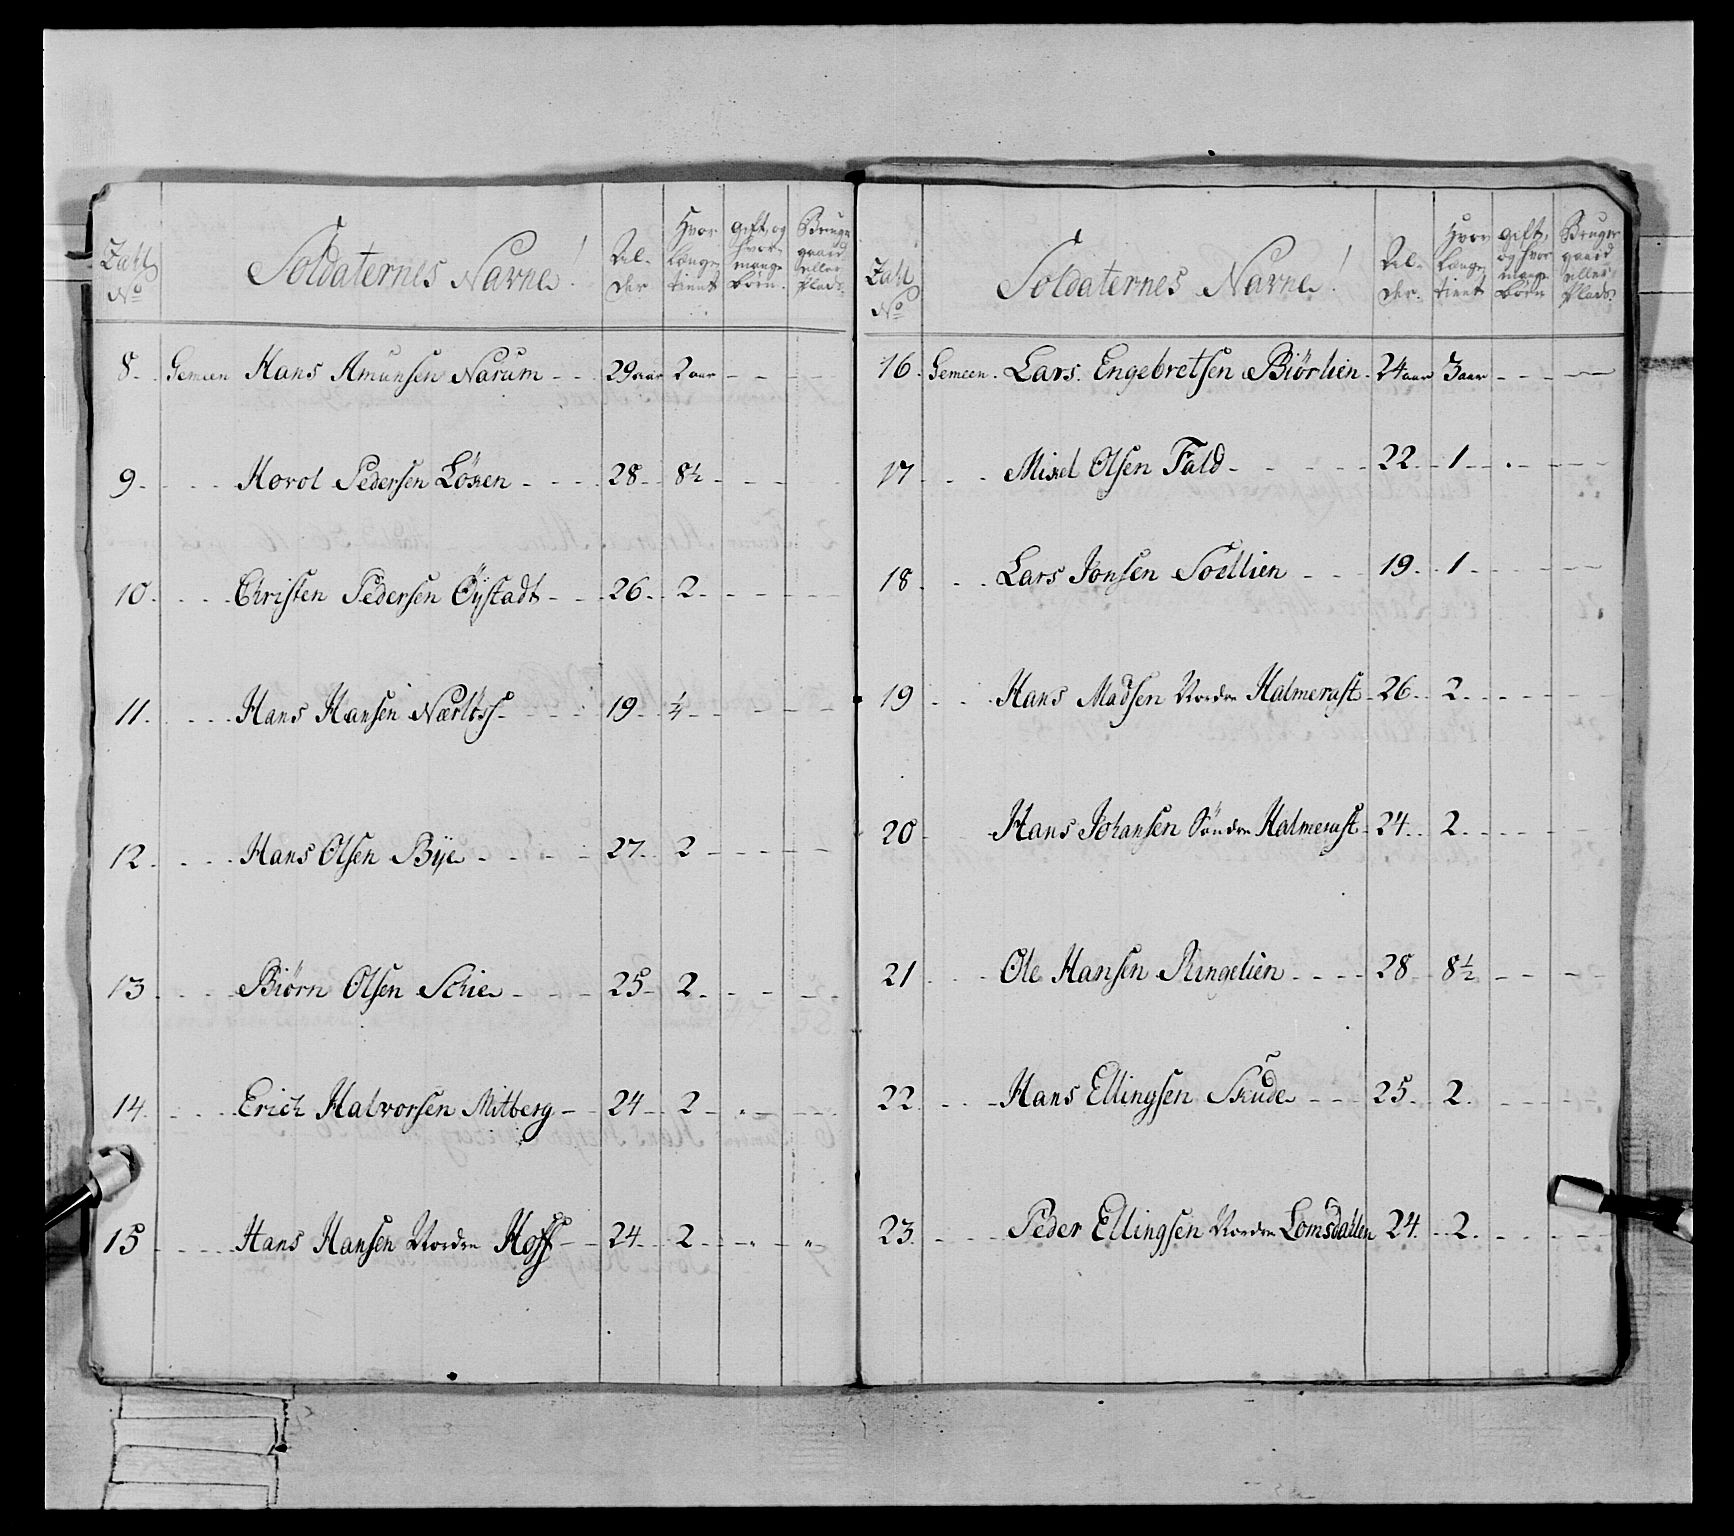 Zahl No Soldaternes Navne! Al- der Hvor længe tient gift, og hvor mange børn. Bruger gaard eller Plads.
8. Gemeen Hans Amunsen Narum 29 aar 2 aar
9. Horol Pedersen Lösen 28 8½
10. Christen Pedersen Öystadt 26 2
11. Hans Hansen Nærlöss 19 ¼
12. Hans Olsen Bye 27 2
13. Biørn Olsen Schie 25 2
14. Erich Halvorsen Mitberg 24 2
15 Hans Hansen Nordre Hoff 24 2
Zahl No Soldaternes Navne! Al- der. Hvor længe tient gift, og hvor mange børn Bruger gaard eller Plads.
16. Gemeen. Lars Engebretsen Biørlien 24 aar 3 aar
17 Mikel Olsen Fald 22 1
18. Lars Jonsen Soellien 19. 1
19 Hans Madsen Nordre Halmerast 26 2
20 Hans Johansen Söndre Halmerast 24 2
21 Ole Hansen Ringelien 28 8½
22 Hans Ellingsen Skude 25 2
23 Peder Ellingsen Nordre Lomsdallen 24. 2